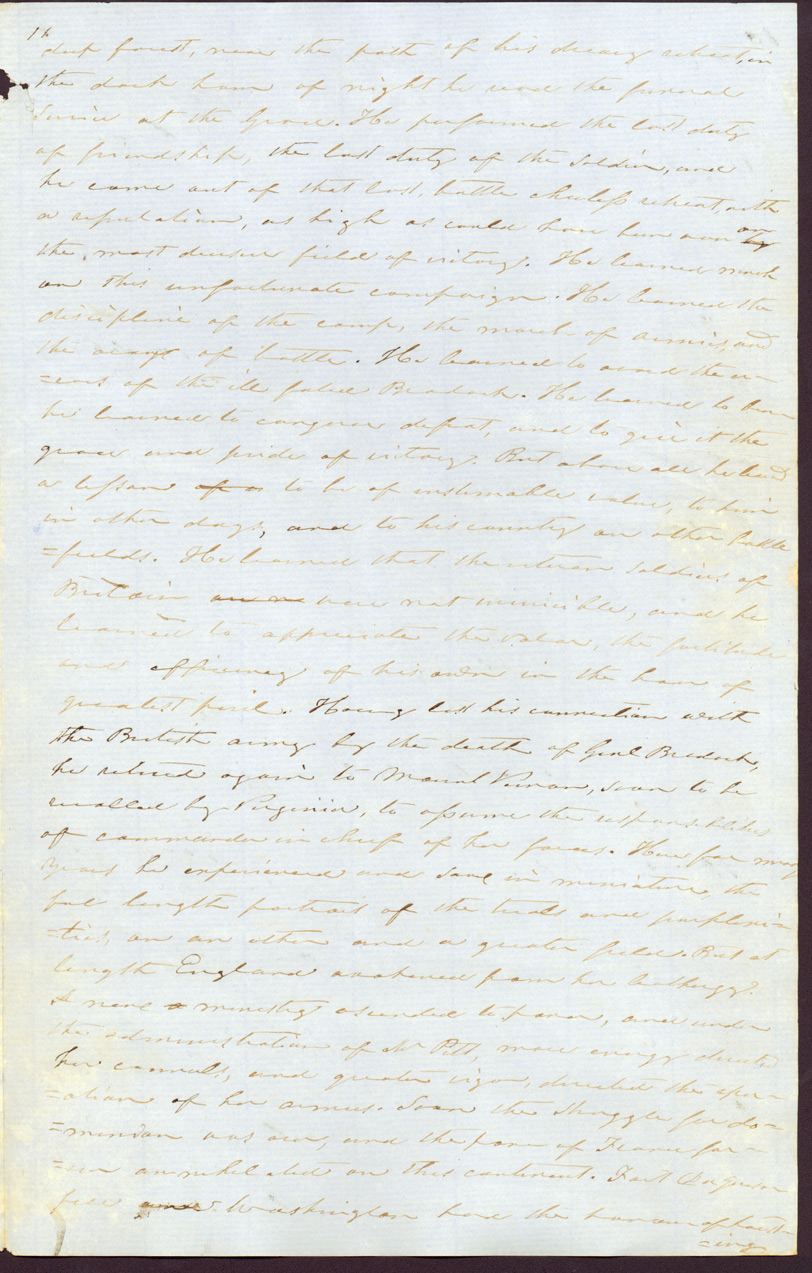 16
deep forest, near the path of his dreary retreat, in
the dark hour of night he read the funeral
Service at the Grave. He performed the last duty
of friendship, the last duty of the soldier, and
he came out of that lost battle & retreat, with
a reputation, as high as could have been won on
the most field of victory. He learned much
on this unfortunate campaign. He learned the
discipline of the camp, the march of armies, and
the of battle. He learned to avoid the er-
=rors of the ill fated Bradock. He learned to
he learned to conquer defeat, and to give it the
grace and pride of victory. But above all he
a lesson to be of inestimable value, to him
in other days, and to his country on other battle
=fields. He learned that the veteran soldiers of
Britain were not invincible, and he
learned to appreciate the valor, the fortitude
and efficiency of his own in the hour of
greatest peril. Having lost his connection with
the British army by the death of Genl Bradock,
he retired again to Mount Vernon, soon to be
recalled by Virginia, to assume the responsibilities
of commander in chief of her forces. Here for many
years he experienced and saw in miniature, the
full length portrait of the trials and perplexi=
=ties, on an other and a greater field. But at
length England awakened from her lethargy.
A new ministry ascended to power, and under
the administration of Mr Pitt, more energy
her councils, and greater vigor, directed the oper-
=ations of her armies. Soon the struggle for do=
=minion was over, and the power of France for-
=ever annihilated on this continent. Fort Duquesne
fell Washington had the honour of hoist-
=ing